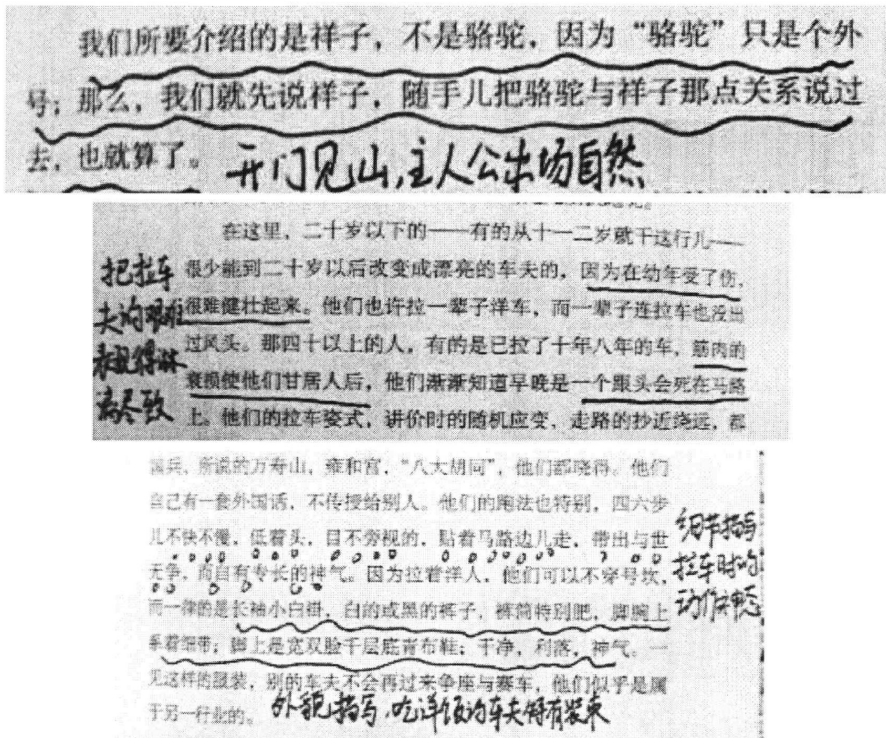 我们所要介绍的是祥子，不是骆驼，因为“骆驼”只是个外
号；那么，我们就先说祥子，随手儿把骆驼与祥子那点关系说过
去，也就算了。
开门见山,主人公出场自然
在这里，二十岁以下的——有的从十一二岁就干这行儿——
很少能到二十岁以后改变成漂亮的车夫的，因为在幼年受了伤，
很难健壮起来。他们也许拉一辈子洋车，而一辈子连拉车也没出
过风头。那四十以上的人，有的是已拉了十年八年的车，筋肉的
衰损使他们甘居人后，他们渐渐知道早晚是一个跟头会死在马路
上。他们的拉车姿式，讲价时的随机应变，走路的抄近绕远，都
把拉车
夫的艰难
表现得淋
漓尽致
国兵，所说的万寿山，雍和宫，“八大胡同”，他们都晓得。他们
自己有一套外国话，不传授给别人。他们的跑法也特别，四六步
儿不快不慢，低着头，目不旁视的，贴着马路边儿走，带出与世
无争，而自有专长的神气。因为拉着洋人，他们可以不穿号坎，
而一律的是长袖小白褂，白的或黑的裤子，裤筒特别肥，脚腕上
系着细带；脚上是宽双脸千层底青布鞋；干净，利落，神气。一
见这样的服装，别的车夫不会再过来争座与赛车，他们似乎是属
于另一行业的。
细节描写
拉车时的
动作神态
外貌描写,吃洋饭的车夫特有装束